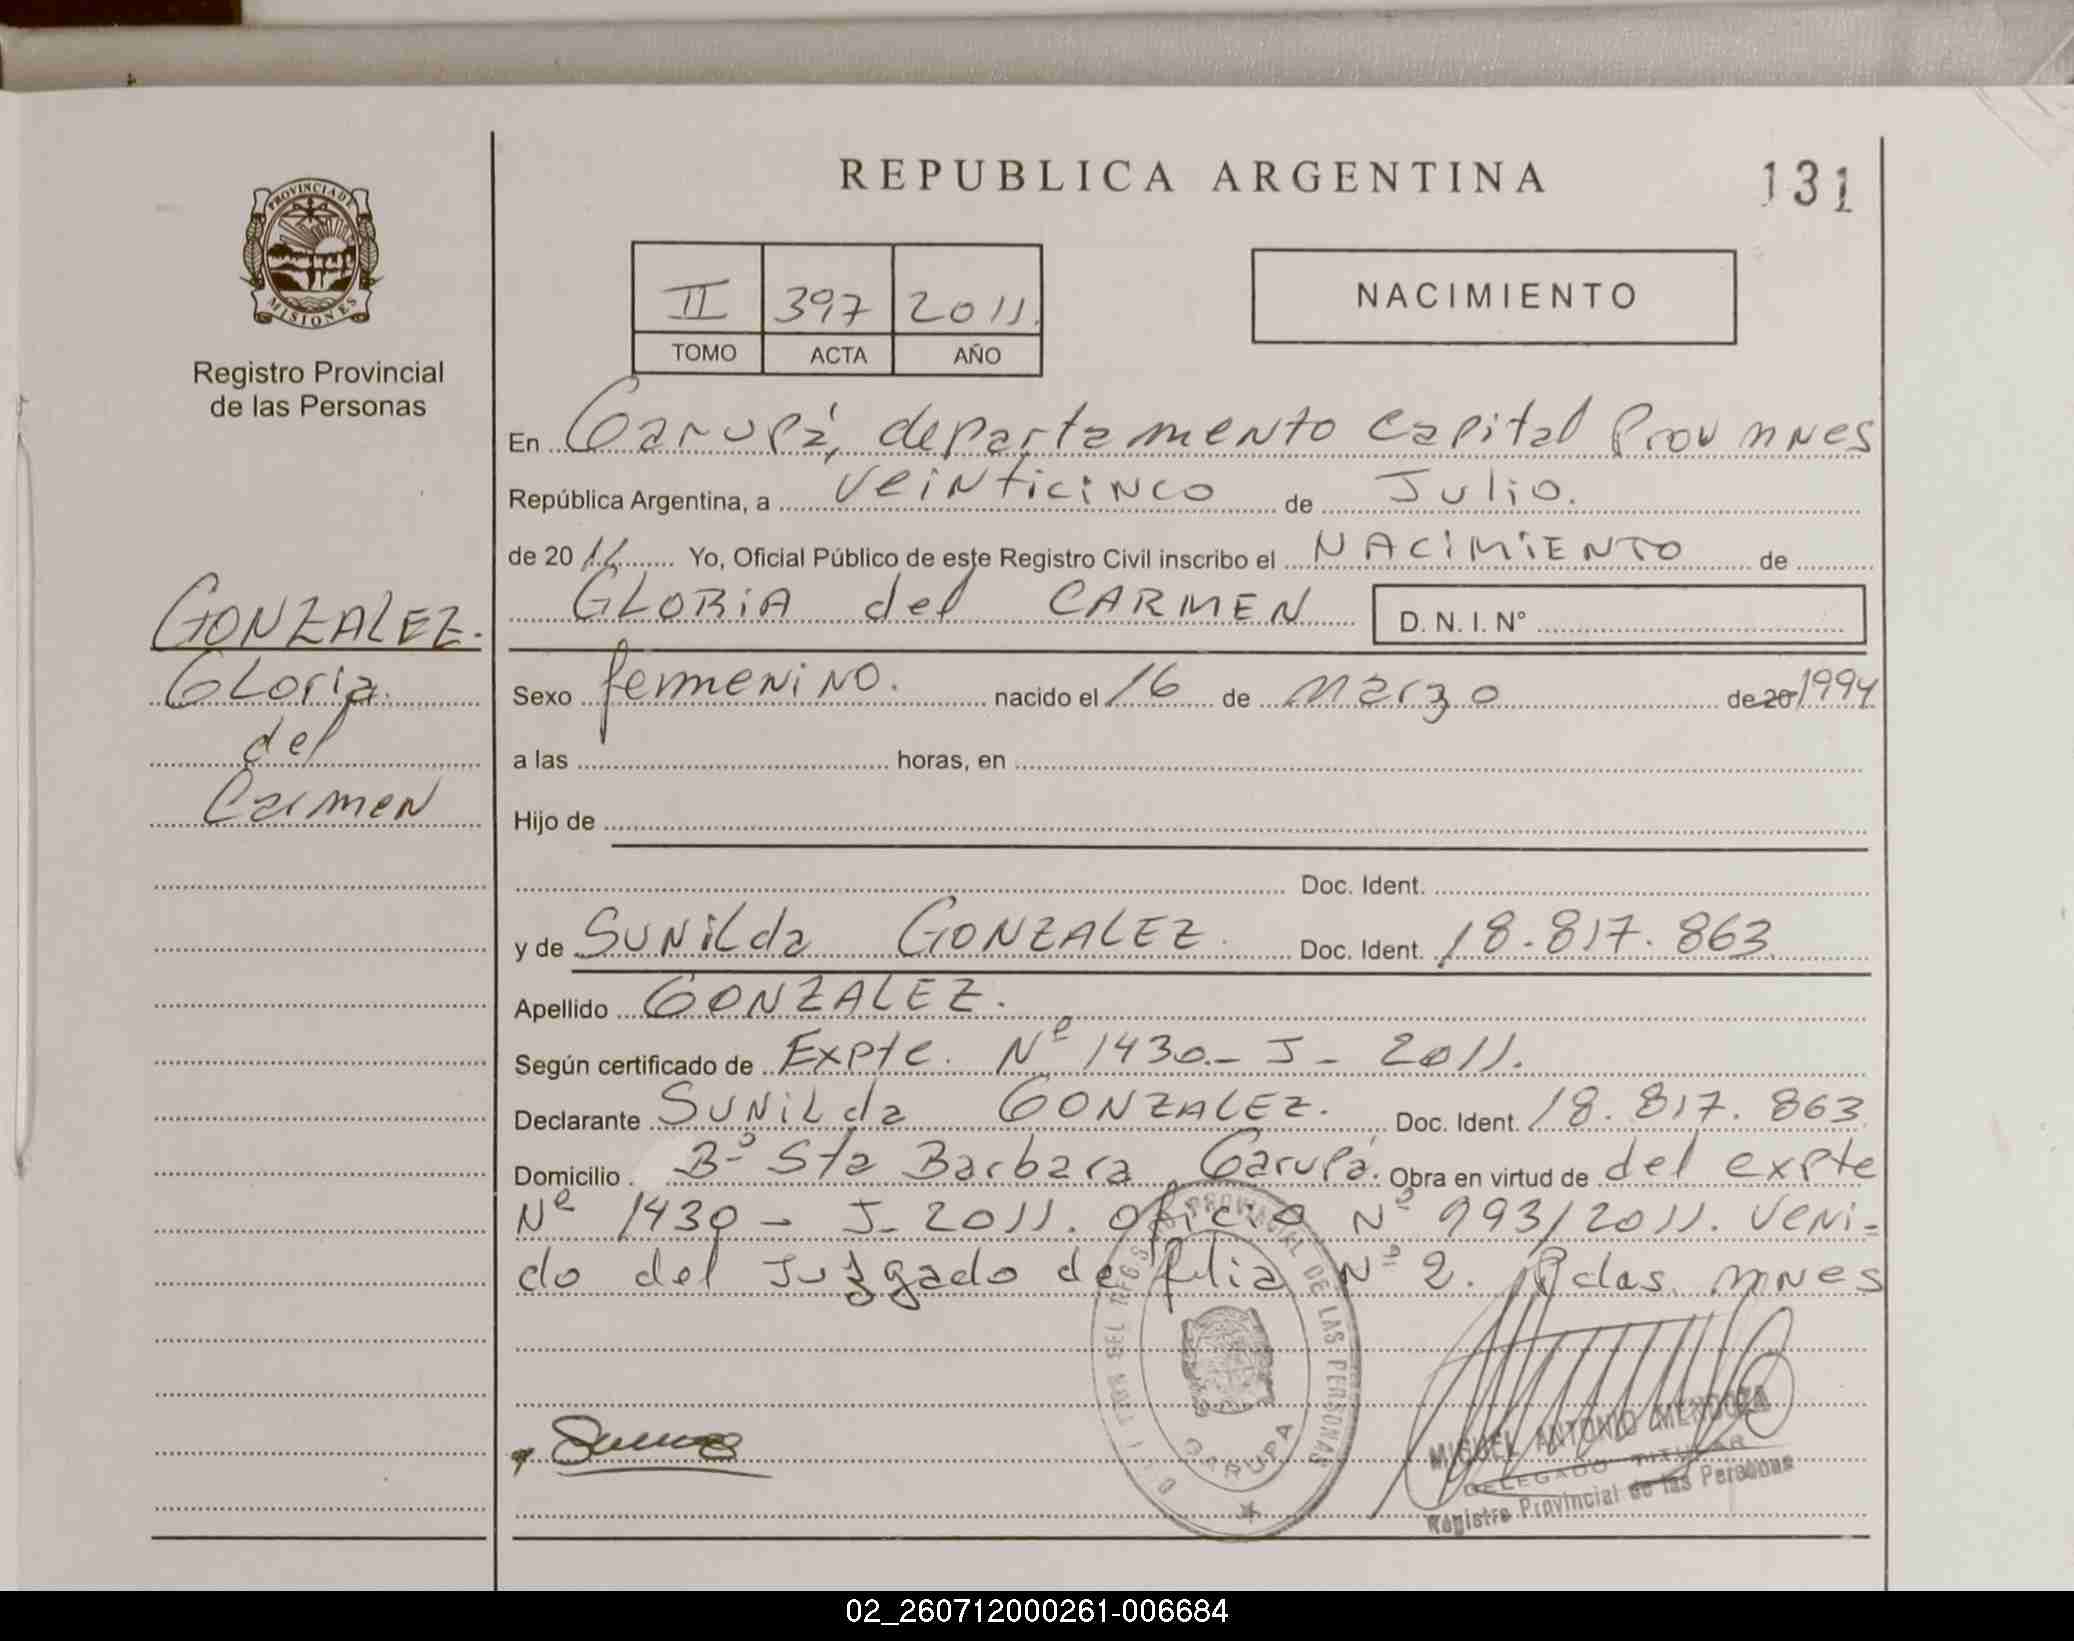 REPUBLICA ARGENTINA
131
PROVINCIA DE MISIONES
Registro Provincial
de las Personas
II 397 2011.
TOMO ACTA AÑO
NACIMIENTO
En Garupá, departamento Capital Prov mnes
República Argentina, a veinticinco de Julio.
de 2011 Yo, Oficial Público de este Registro Civil inscribo el NACIMIENTO de
GLORIA del CARMEN D. N. I. N°
GONZALEZ.
Gloria
del
Carmen
Sexo femenino. nacido el 16 de marzo de 20 1994
a las horas, en
Hijo de
Doc. Ident.
y de SUNILda GONZALEZ. Doc. Ident. 18.817.863
Apellido GONZALEZ.
Según certificado de Expte. Nº 1430 - J - 2011.
Declarante SUNILda GONZALEZ. Doc. Ident. 18.817.863
Domicilio Bº Sta Barbara Garupá. Obra en virtud de del expte
Nº 1430 - J - 2011. oficio Nº 993/2011. veni-
do del Juzgado de flia Nº 2. Pdas. mnes
PROVINCIAL DE LAS PERSONAS
GARUPA
MIGUEL ANTONIO MENDOZA
DELEGADO TITULAR
Registro Provincial de las Personas
02_260712000261-006684